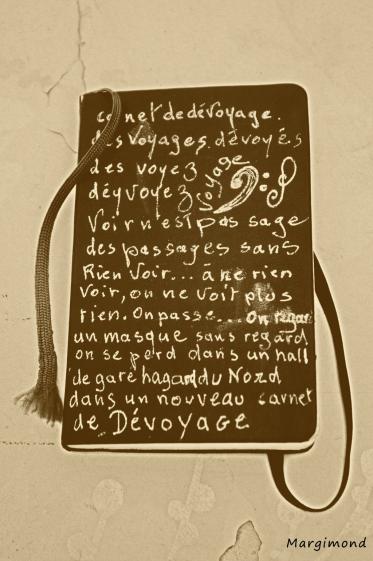 carnet de dévoyage.
des voyages dévoyés
des voyez
déyvoyez voyage
Voir n'est pas sage
des passages sans
Rien Voir... à ne rien
Voir, on ne Voit plus
rien. On passe... On regar
un masque sans regard
on se perd dans un hall
de gare hagard du Nord
dans un nouveau carnet
de Dévoyage
Margimond